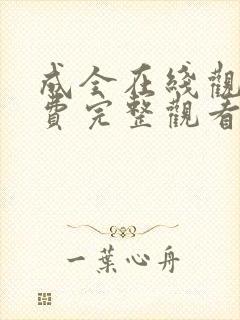 成全在线觀
費完整觀看
一葉心舟